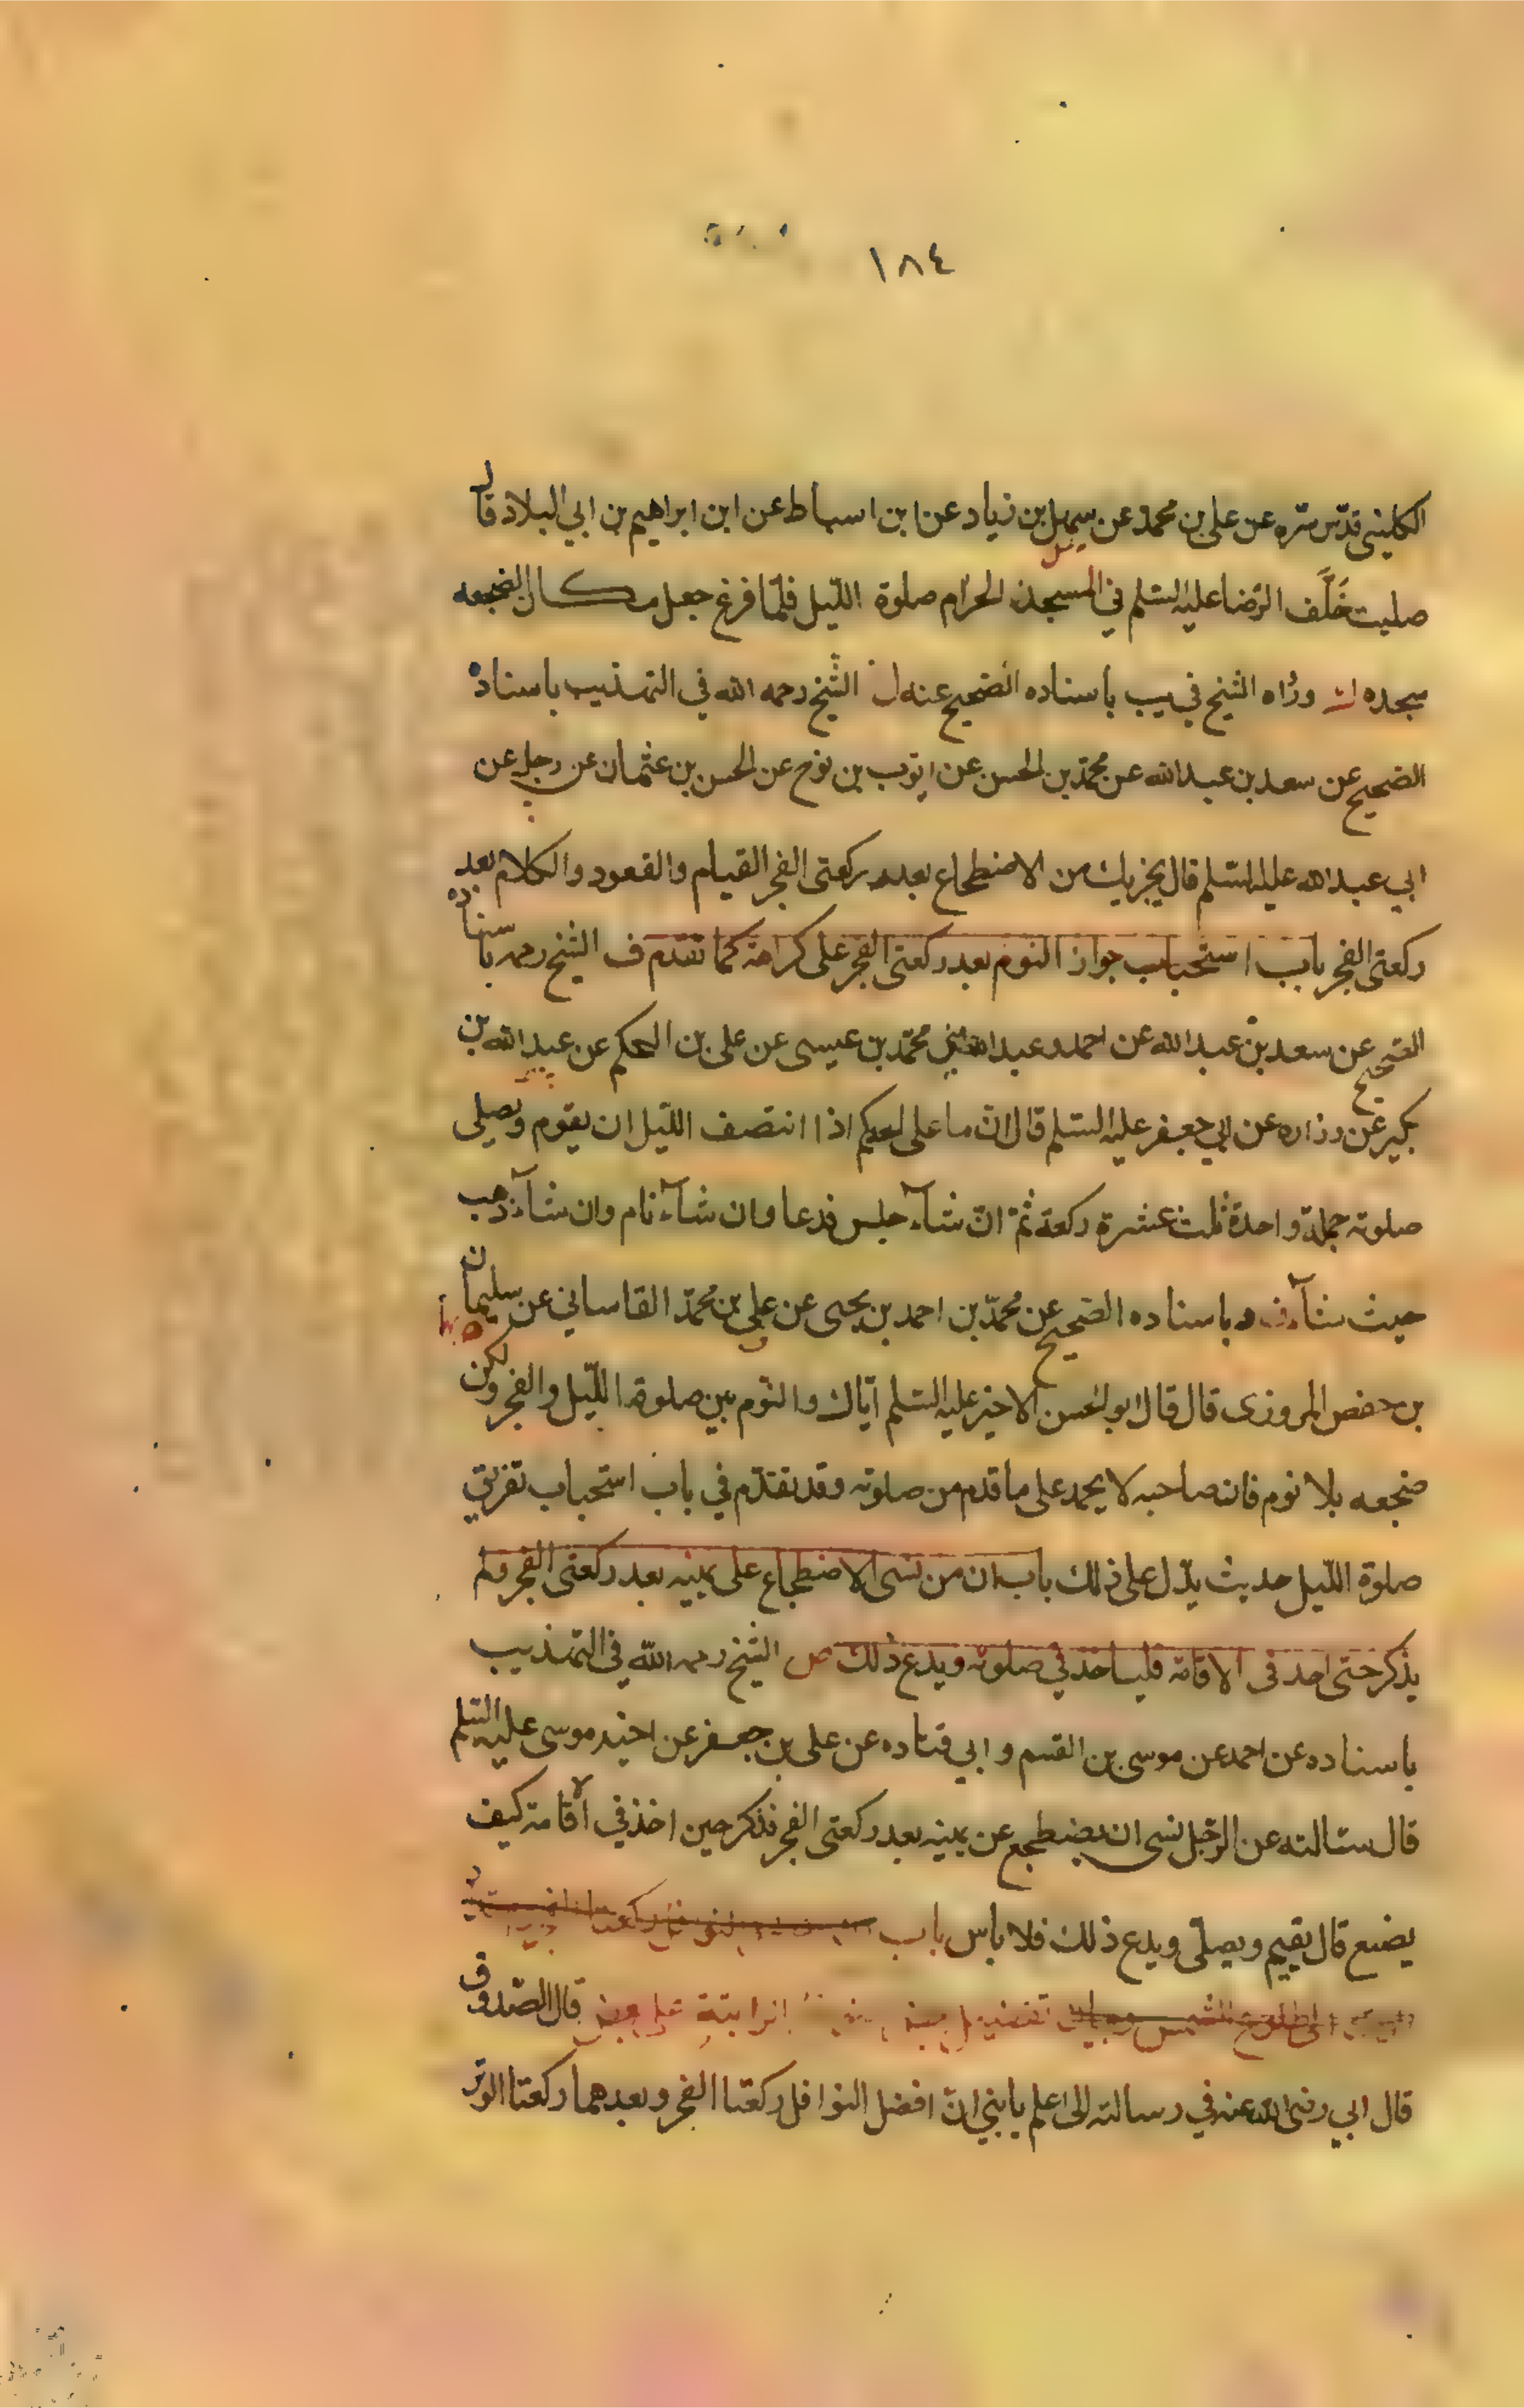 ١٨٤
الكليني قدّس سّره عن علي بن محمد عن سهل بن زياد عن ابن اسباط عن ابن ابراهيم بن ابي البلاد قال
صليت خَلَف الرّضا عليه السّلم في المسجد الحرام صلوة اللّيل فلمّا فرغ جعل مكان الضجعه
سجده ورواه الشيخ في يب باسناده الصّحيح عنه الشّيخ رحمه الله في التهذيب باسناده
الصّحيح عن سعد بن عبد الله عن محمّد بن الحسن عن ايّوب بن نوح عن الحسن بن عثمان عن رجل عن
ابي عبد الله عليه السّلم قال يجزيك من الاضطجاع بعد ركعتى الفجر القيام والقعود والكلام بعد
ركعتى الفجر باب استحباب جواز النوم بعد ركعتى الفجر على كراهة كما تقدم ف الشيخ رحمه باسناده
الصّحيح عن سعد بن عبد الله عن احمد وعبد الله ابني محمّد بن عيسى عن على بن الحكم عن عبد الله بن
بكير عن زراره عن ابي جعفر عليه السّلم قال انّ ما على احدكم اذا انتصف اللّيل ان يقوم ويصلي
صلوته جملة واحدة ثلث عشرة ركعة ثمّ انّ شآء جلس فدعا وان شآء نام وان شآء ذهب
حيث شآء ف وباسناده الصّحيح عن محمّد بن احمد بن يحيى عن علي بن محمّد القاساني عن سليمان
بن حفص المروزى قال قال ابو الحسن الاخير عليه السّلم ايّاك والنّوم بين صلوة اللّيل والفجر ولكن
ضجعه بلا نوم فان صاحبه لا يحمد على ما قدم من صلوته وقد تقدّم في باب استحباب تفريق
صلوة اللّيل حديث يدّل على ذلك باب ان من نسى الاضطجاع على يمينه بعد ركعتى الفجر ولم
يذكر حتى اخذ فى الاقامة فلياخذ في صلوته ويدع ذلك ص الشّيخ رحمه الله في التهذيب
باسناده عن احمد عن موسى بن القسم وابي قتاده عن على بن جعفر عن اخيه موسى عليه السّلم
قال سئالته عن الرّجل نسى ان يضطجع عن يمينه بعد ركعتى الفجر فذكر حين اخذ في الاقامة كيف
يصنع قال يقيم ويصلّى ويدع ذلك فلا باس باب
الى طلوع الشمس على بعض قال الصّدوق
قال ابي رضى الله عنه في رسالته الى اعلم يا بني انّ افضل النوافل ركعتا الفجر وبعدهما ركعتا الوتر